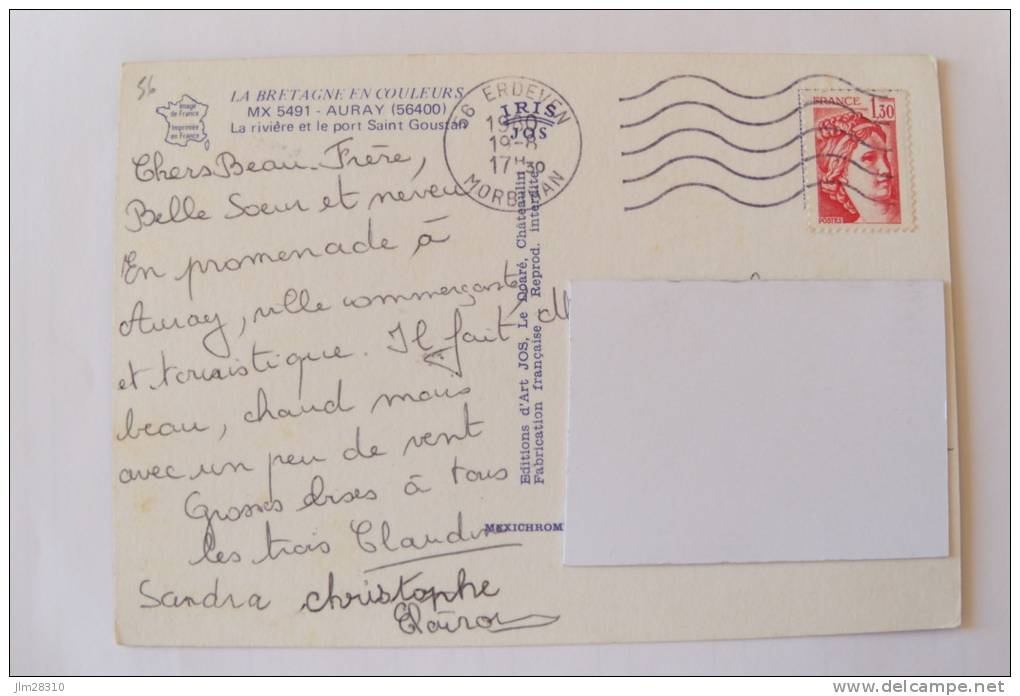 56
Image
de France
Imprimée
en France
LA BRETAGNE EN COULEURS
MX 5491 - AURAY (56400)
La rivière et le port Saint Goustan
56 ERDEVEN
1980
19-8
17H30
MORBIHAN
IRIS
JOS
FRANCE
1,30
POSTES
Chers Beau-Frère,
Belle Soeur et neveu
En promenade à
Auray, ville commerçante
et touristique. Il fait
beau, chaud mais
avec un peu de vent
Grosses bises à tous
les trois Claudine
Sandra christophe
Editions d'Art JOS, Le Doaré, Châteaulin
Fabrication française - Reprod. interdite
MEXICHROME
jlm28310
delcampe.net